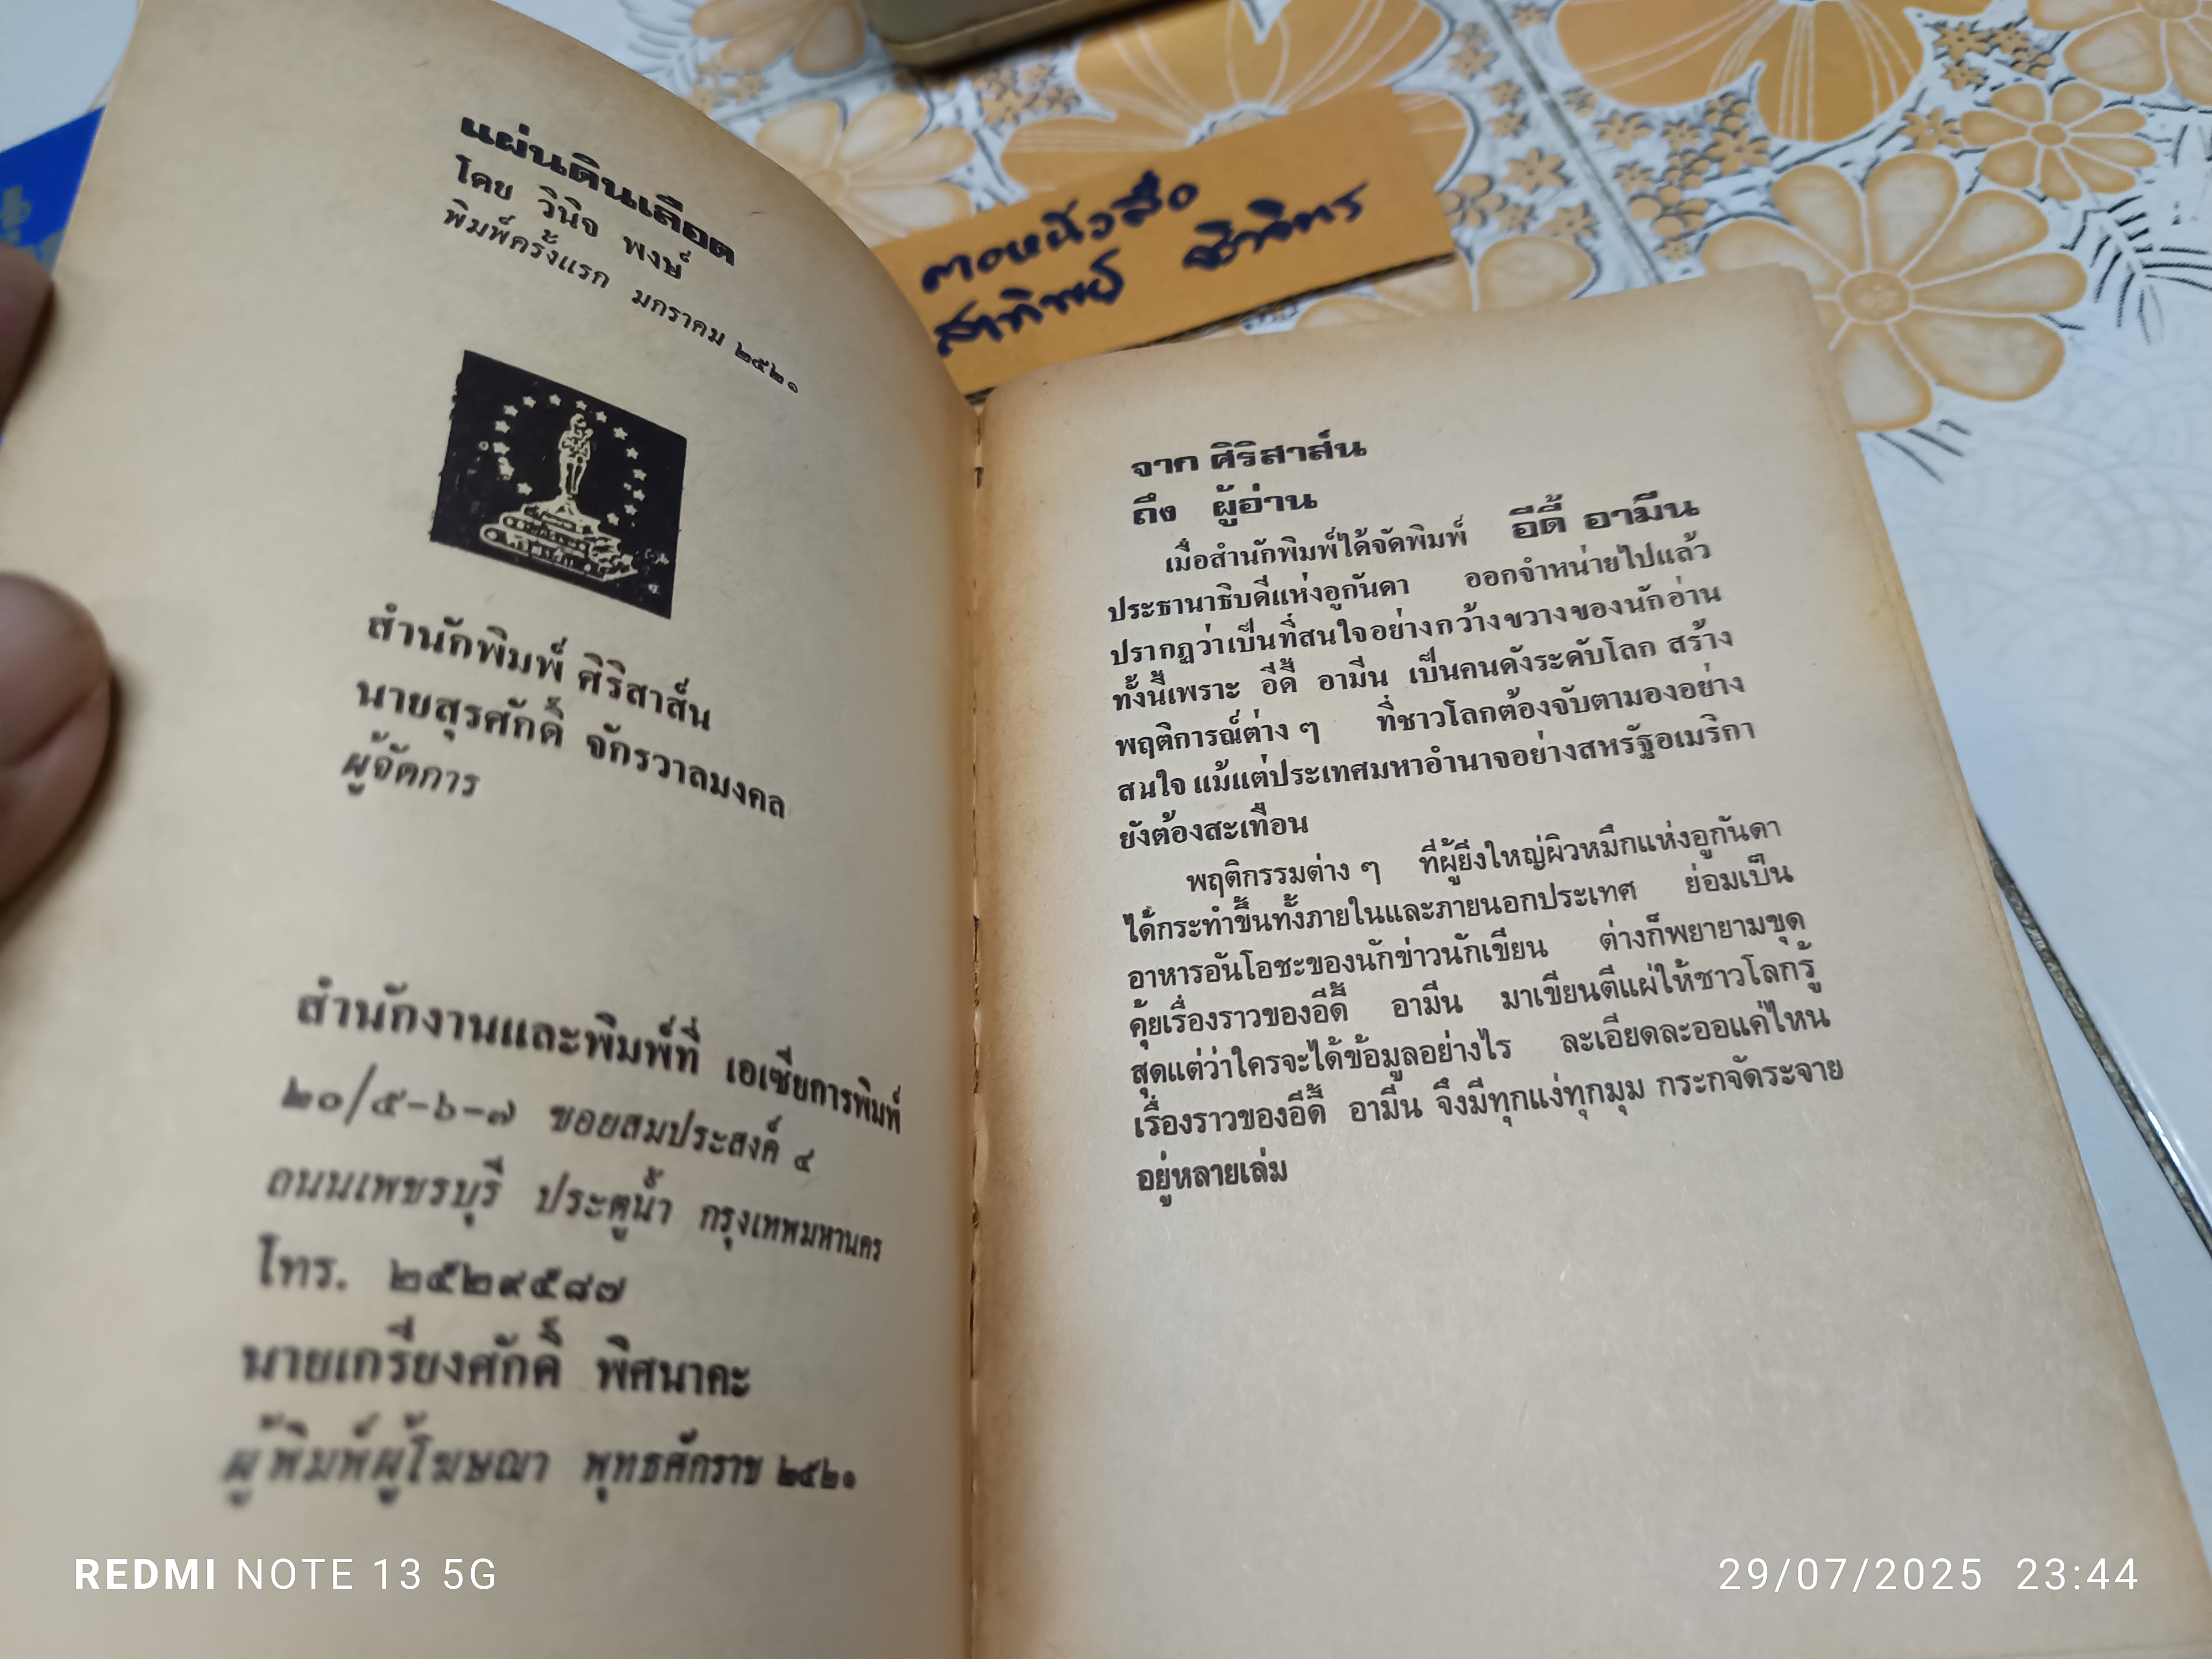 แผ่นดินเลือด
โดย วินิจ พงษ์
พิมพ์ครั้งแรก มกราคม ๒๕๒๑
สำนักพิมพ์ ศิริสาส์น
นายสุรศักดิ์ จักรวาลมงคล
ผู้จัดการ
สำนักงานและพิมพ์ที่ เอเซียการพิมพ์
๒๐/๕-๖-๗ ซอยสมประสงค์ ๔
ถนนเพชรบุรี ประตูน้ำ กรุงเทพมหานคร
โทร. ๒๕๒๙๕๘๗
นายเกรียงศักดิ์ พิศนาคะ
ผู้พิมพ์ผู้โฆษณา พุทธศักราช ๒๕๒๑
จาก ศิริสาส์น
ถึง ผู้อ่าน
เมื่อสำนักพิมพ์ได้จัดพิมพ์ อีดี้ อามีน
ประธานาธิบดีแห่งอูกันดา ออกจำหน่ายไปแล้ว
ปรากฏว่าเป็นที่สนใจอย่างกว้างขวางของนักอ่าน
ทั้งนี้เพราะ อีดี้ อามีน เป็นคนดังระดับโลก สร้าง
พฤติการณ์ต่าง ๆ ที่ชาวโลกต้องจับตามองอย่าง
สนใจ แม้แต่ประเทศมหาอำนาจอย่างสหรัฐอเมริกา
ยังต้องสะเทือน
พฤติกรรมต่าง ๆ ที่ผู้ยิ่งใหญ่ผิวหมึกแห่งอูกันดา
ได้กระทำขึ้นทั้งภายในและภายนอกประเทศ ย่อมเป็น
อาหารอันโอชะของนักข่าวนักเขียน ต่างก็พยายามขุด
คุ้ยเรื่องราวของอีดี้ อามีน มาเขียนตีแผ่ให้ชาวโลกรู้
สุดแต่ว่าใครจะได้ข้อมูลอย่างไร ละเอียดละออแค่ไหน
เรื่องราวของอีดี้ อามีน จึงมีทุกแง่ทุกมุม กระกจัดระจาย
อยู่หลายเล่ม
REDMI NOTE 13 5G
29/07/2025 23:44